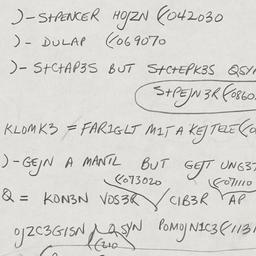 )-SPENCER HOJZN (/042030
)- DULAP (/069070
)-S+C+AP3S BUT S+C+EPK3S QSY
(S+PEJN3R (/0860
KLOMK3 = FAR1GLT M1TA KEJTELE(/0
)-GEJN A MANTL BUT GEJT UNG3
(/073020 (/071110
Q = KON3N VOS3R C1B3R AP
OJZC3G1SN Q SYN POMOJN1C3(/113
(/210